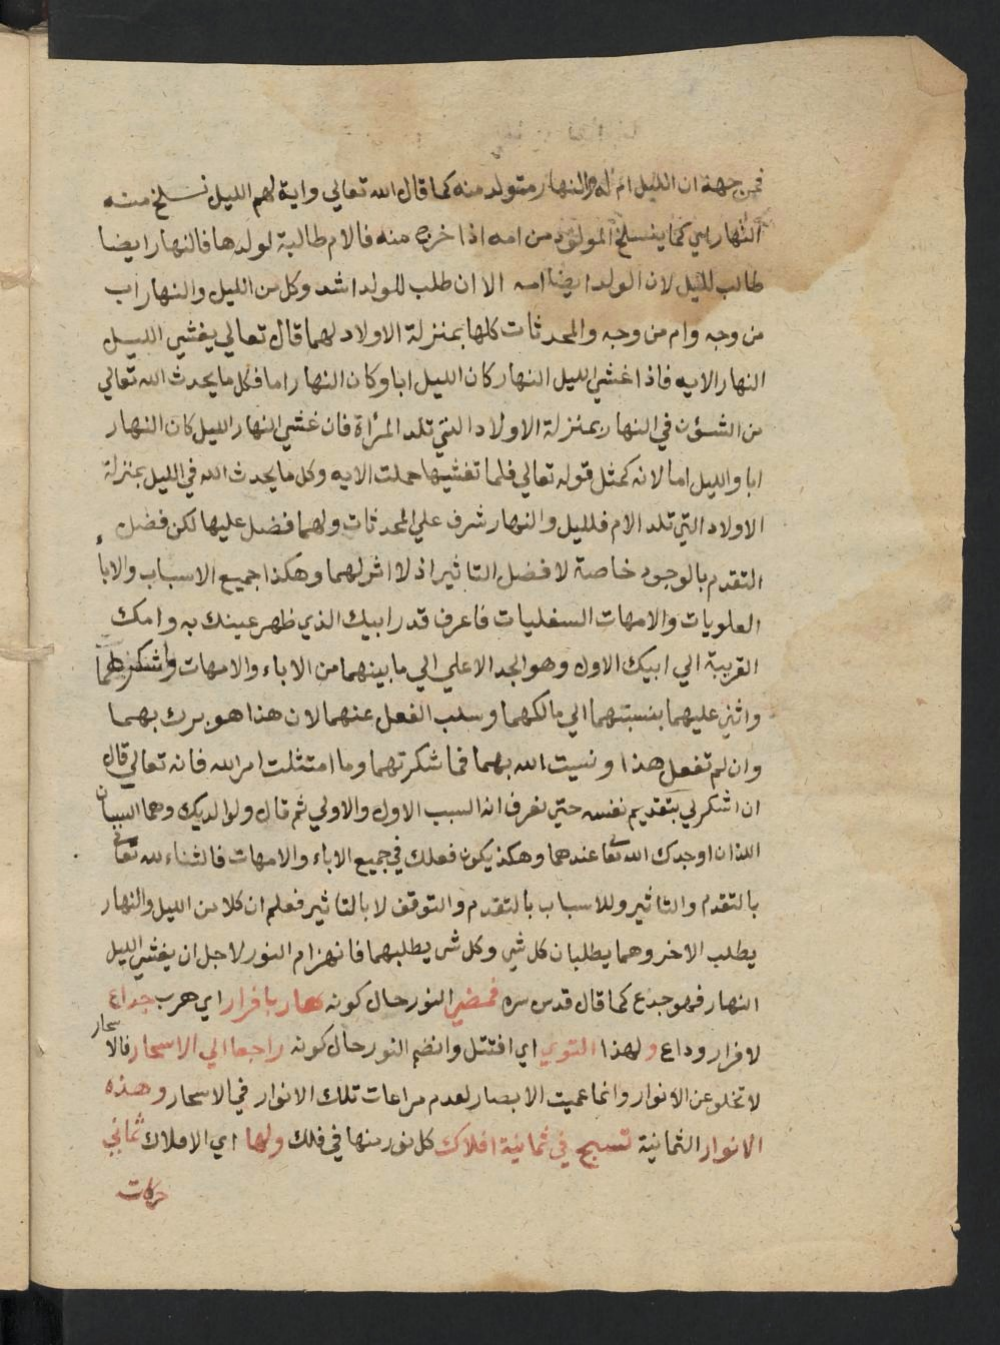 فمن جهة ان الليل ام له والنهار متولد منه كما قال الله تعالي واية لهم الليل نسلخ منه
النهار اي كما ينسلخ المولود من امه اذا خرج منه فالام طالبة لولدها فالنهار ايضا
طالب لليل لان الولد ايضا امه الا ان طلب للولد اشد وكل من الليل والنهار اب
من وجه وام من وجه والمحدثات كلها بمنزلة الاولاد لهما قال تعالي يغشي الليل
النهار الايه فاذا غشي الليل النهار كان الليل ابا وكان النهار اما فكل ما يحدث الله تعالي
من الشؤن في النهار بمنزلة الاولاد التي تلد المرأة فان غشي النهار الليل كان النهار
ابا والليل اما لانه كمثل قوله تعالي فلما تغشيها حملت الايه وكل ما يحدث الله في الليل بمنزلة
الاولاد التي تلد الام فلليل والنهار شرف علي المحدثات ولهما فضل عليها لكن فضل
التقدم بالوجود خاصة لا فضل التاثير اذ لا اثر لهما وهكذا جميع الاسباب والاباء
العلويات والامهات السفليات فاعرف قدر ابيك الذي ظهر عينك به وامك
القريبة الي ابيك الاول وهو الجد الاعلي الي ما بينهما من الاباء والامهات واشكر لهما
واثني عليهما بنسبتهما الي مالكهما وسلب الفعل عنهما لان هذا هو برك بهما
وان لم تفعل هذا ونسيت الله بهما فما شكرتهما وما امتثلت امر الله فانه تعالي قال
ان اشكر لي بتقديم نفسه حتي نعرف انه السبب الاول والاولي ثم قال ولوالديك وهما السببان
اللذان اوجدك الله تعا عندهما وهكذ يكون فعلك في جميع الاباء والامهات فالثناء لله تعالي
بالتقدم والتاثير وللاسباب بالتقدم والتوقف لا بالتاثير فعلم ان كلا من الليل والنهار
يطلب الاخر وهما يطلبان كل شي وكل شي يطلبهما فانهزام النور لاجل ان يغشي الليل
النهار فهو جدع كما قال قدس سره فمضي النور حال كونه هاربا فرار اي هرب جداع
لا فرار وداع ولهذا التوي اي افتتل وانضم النور حال كونه راجعا الي الاسحار فالاسحار
لا تخلو عن الانوار وانما عميت الابصار لعدم مراعات تلك الانوار في الاسحار وهذه
الانوار الثمانية تسبح في ثمانية افلاك كل نور منها في فلك ولها اي الافلاك ثماني
حركات